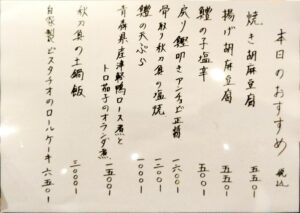 本日のおすすめ 税込
焼き胡麻豆腐 五五〇-
揚げ胡麻豆腐 五五〇-
鱧の子塩辛 五〇〇-
戻り鰹叩きアンチョビ 一六〇〇-
骨取り秋刀魚の塩焼 一二〇〇-
鱧の天ぷら 一〇〇〇-
青森県産津軽鴨ロース煮と
トロ茄子のオランダ煮 一五〇〇-
秋刀魚の土鍋飯 三〇〇〇-
自家製ピスタチオのロールケーキ 六五〇-